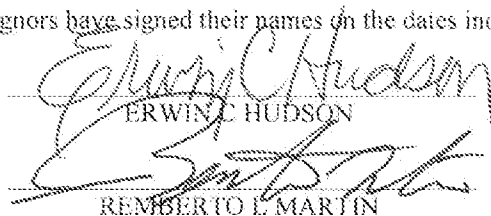 gnors have signed their names on the dates inc
Erwin C Hudson
ERWIN C HUDSON
REMBERTO L MARTIN